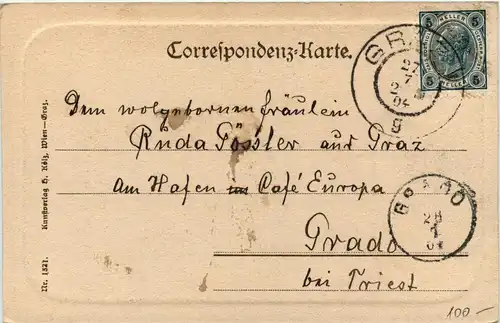 Correspondenz-Karte.
Dem wolgebornen fräulein
Ruda Pössler aus Graz
am Hafen im Café Europa
Grado
bei Triest
GRADO
28
7
Kunstverlag S. Kölz, Wien-Graz.
Nr. 1521.
5 HELLER 5
27
7
04
9
100-